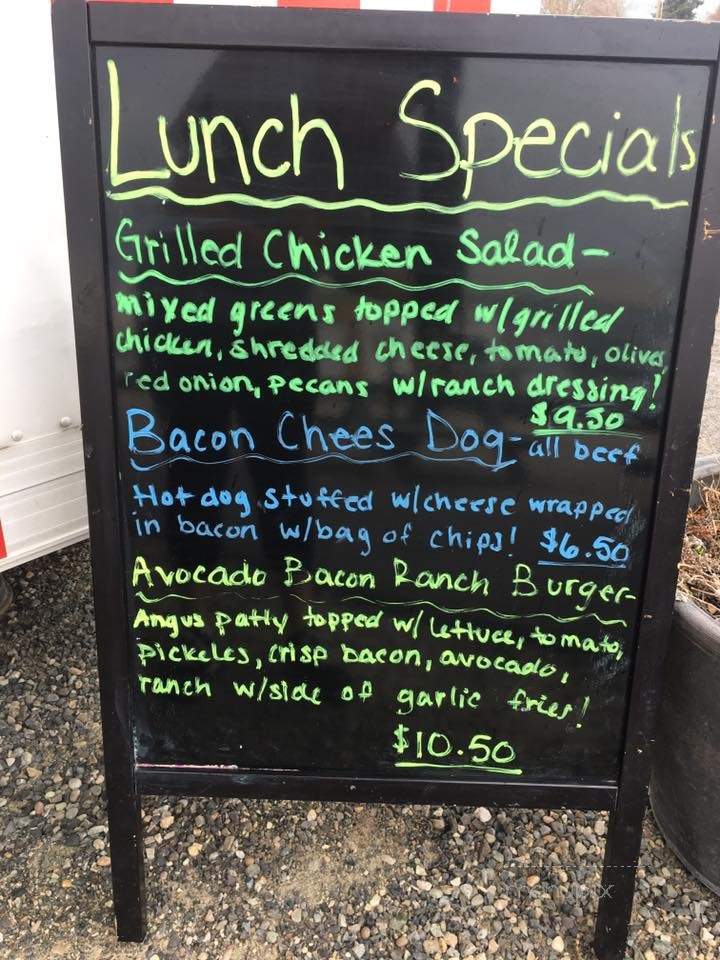 Lunch Specials
Grilled Chicken Salad-
mixed greens topped w/grilled
chicken, shredded cheese, tomato, olives,
red onion, pecans w/ranch dressing!
$9.50
Bacon Chees Dog- all beef
Hot dog stuffed w/cheese wrapped
in bacon w/bag of chips! $6.50
Avocado Bacon Ranch Burger-
Angus patty topped w/ lettuce, tomato,
pickeles, crisp bacon, avocado,
ranch w/side of garlic fries!
$10.50